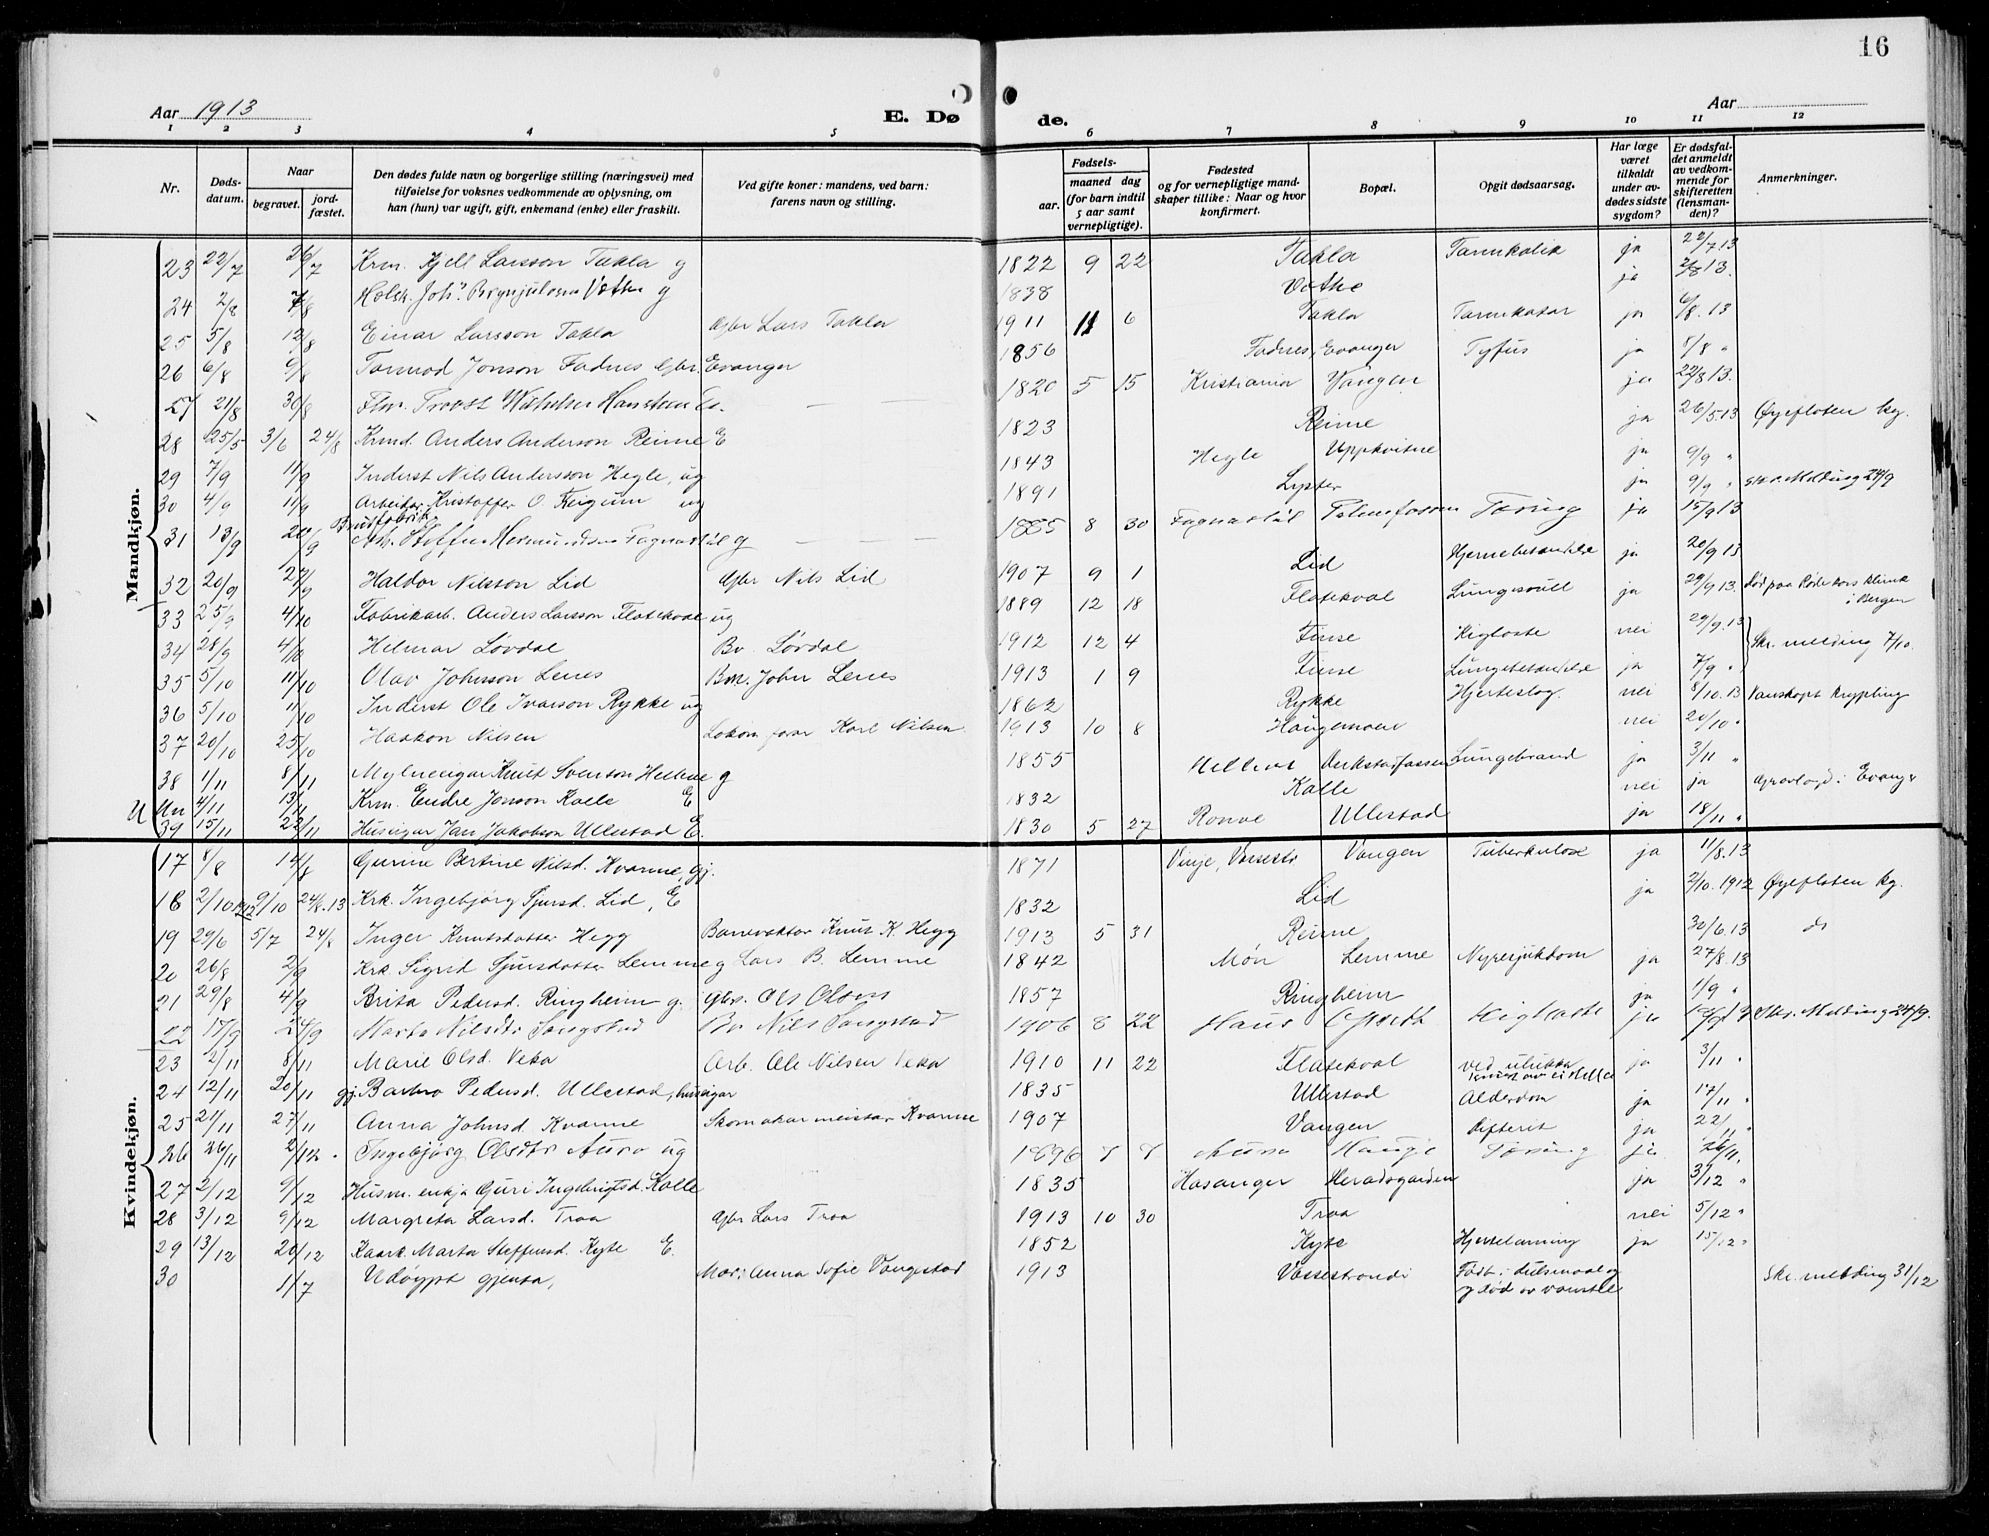 16
Aar 1913
E. Dø de.
Aar
1 2 3 4 5 6 7 8 9 10 11 12
Nr.
Døds-
datum.
Naar
begravet.
jord-
fæstet.
Den dødes fulde navn og borgerlige stilling (næringsvei) med
tilføielse for voksnes vedkommende av oplysning, om
han (hun) var ugift, gift, enkemand (enke) eller fraskilt.
Ved gifte koner: mandens, ved barn:
farens navn og stilling.
Fødsels-
aar.
maaned dag
(for barn indtil
5 aar samt
vernepligtige).
Fødested
og for vernepligtige mand-
skaper tillike: Naar og hvor
konfirmert.
Bopæl.
Opgit dødsaarsag.
Har læge
været
tilkaldt
under av-
dødes sidste
sygdom?
Er dødsfal-
det anmeldt
av vedkom-
mende for
skifteretten
(lensman-
den)?
Anmerkninger.
Mandkjøn.
23 22/7 26/7 Krm. Kjell Larsson Takla g 1822 9 22 Takla Tarmkolik ja 22/7.13
24 2/8 7/8 Joh. Brynjulsson Væthe g 1838 Væthe ja 2/8 13.
25 5/8 12/8 Einar Larsson Takla Gbr Lars Takla 1911 11 6 Takla Tarmkatar ja 6/8.13
26 6/8 9/8 Tormod Jonson Fadnes Gbr. Evanger 1856 Fadnes, Evanger Tyfus ja 8/8 "
27 21/8 30/8 1820 5 15 Kristiania Vangen ja 22/8 13.
28 25/5 3/6 24/8 Krmd. Anders Anderson Reime E 1823 Reime ja 26/5.13 Øyefloten kg.
29 7/9 11/9 Inderst Nils Andersson Hegle, ug 1843 Hegle Uppkvitne ja 9/9 "
30 4/9 11/9 Arbeider Kristoffer O. Feigum ug 1891 Lyster ja 9/9 " Skr. Melding 24/9
31 13/9 20/9 1885 8 30 Fagnastøl Tæring ja 15/9 13
32 20/9 27/9 Haldor Nilsson Lid Gbr Nils Lid 1907 9 1 Lid Hjernebetændelse ja 20/9 13
33 25/9 4/10 Fabrikarb. Anders Larsson Flatekval ug 1889 12 18 Flatekval Lungesoull ja 29/9 13. død paa Røde kors klinik
i Bergen
34 28/9 4/10 Helmar Løvdal Bv. Løvdal 1912 12 4 Finse Kighoste nei 29/9.13 Skr. melding 7/10.
35 5/10 11/10 Olav Johnsson Lenes Bm. John Lenes 1913 1 9 Finse Lungebetændelse ja 7/9 "
36 5/10 11/10 Inderst Ole Ivarson Rykke ug 1862 Rykke Hjerteslag. nei 8/10.13 Vanskapt krypling
37 20/10 25/10 Haakon Nilsen Lokom.fører Karl Nilsen 1913 10 8 Haugamoen nei 20/10 "
38 1/11 8/11 Knut Svenson Hellene g 1855 Hellene Lungebrand ja 3/11 "
U Un 4/11 13/11 Krm. Endre Jonson Kalle E 1832 Kalle nei ja Gravlagd i Evanger
39 15/11 22/11 Huseigar Jan Jakobson Ullestad E. 1830 5 27 Ronve Ullestad ja 18/11 "
Kvindekjøn.
17 8/8 14/8 Gurine Bertine Nilsd. Kvarme, gj. 1871 Vinje, Vossestr Vangen Tuberkulose ja 11/8.13
18 2/10 1912 9/10 24/8.13 Krk. Ingebjørg Sjursd. Lid, E 1832 Lid ja 2/10.1912 Øyefloten kg.
19 29/6 5/7 24/8 Inger Knutsdotter Hegg Banevaktor Knut K. Hegg 1913 5 31 Reime 30/6.13 do
20 26/8 2/9 Krk. Sigrid Sjursdotter Lemme g Lars B. Lemme 1842 Møn Lemme Nyresjukdom ja 27/8.13
21 29/8 4/9 Brita Pedersd. Ringheim g. Gbr. Ole Olson 1857 Ringheim ja 1/9 "
22 17/9 24/9 Marta Nilsdtr Sangstad Bv Nils Sangstad 1906 8 22 Haus Kighoste ja Skr. Melding 24/9.
23 2/11 8/11 Marie Olsd. Veka Arb. Ole Nilsen Veka 1910 11 22 Flatekval ved ulukka ja 3/11 "
24 12/11 20/11 gj. Barbro Pedersd. Ullestad, huseigar 1835 Ullestad Alderdom ja 17/11 "
25 21/11 27/11 Anna Johnsd. Kvarme Skomakarmeistar Kvarme 1907 Vangen Difterit ja 22/11 "
26 26/11 2/12. Ingebjørg Olsdtr Aurø ug 1896 8 8 Hauge Tæring ja 26/11.
27 2/12 9/12 Husm. enkja Guri Ingebrigtsd. Kalle 1835 Hosanger Heradsgarden ja 3/12 "
28 3/12 9/12 Margreta Larsd. Traa Gbr Lars Traa 1913 10 30 Traa nei 5/12 "
29 13/12 20/12 Kaark. Marta Steffensd. Kyte E. 1852 Kyte Hjertelamning ja 15/12 "
30 1/7 Udøypt gjenta, Mor: Anna Sofie Vangestad 1913 Vossestrondi Født i dulsmaal og
og død av vanstell Skr. melding 31/12